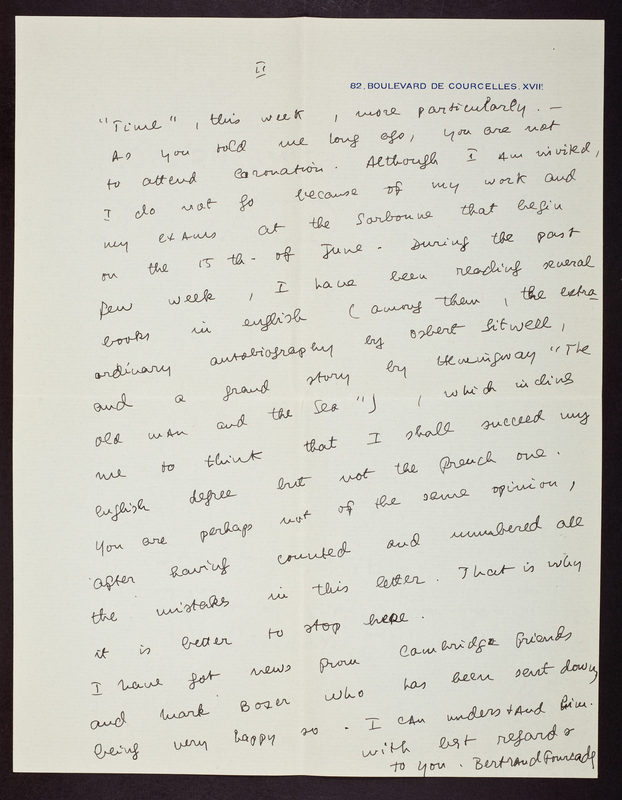 II
82, BOULEVARD DE COURCELLES. XVIIE
"Time", this week, more particularly. —
As you told me long ago, you are not
to attend Caronation. Although I am invited,
I do not go because of my work and
my exams at the Sorbonne that begin
on the 15 th. of June. During the past
few week, I have been reading several
books in english (among them, the extra-
ordinary autobiography by Osbert Sitwell,
and a grand story by Hemingway "The
old man and the Sea"), which inclins
me to think that I shall succeed my
english degree but not the french one.
You are perhaps not of the same opinion,
after having counted and numbered all
the mistakes in this letter. That is why
it is better to stop here.
I have got news from Cambridge friends
and Mark Boxer who has been sent down,
being very happy so. I can understand him.
with best regards
to you. Bertrand Fourcade